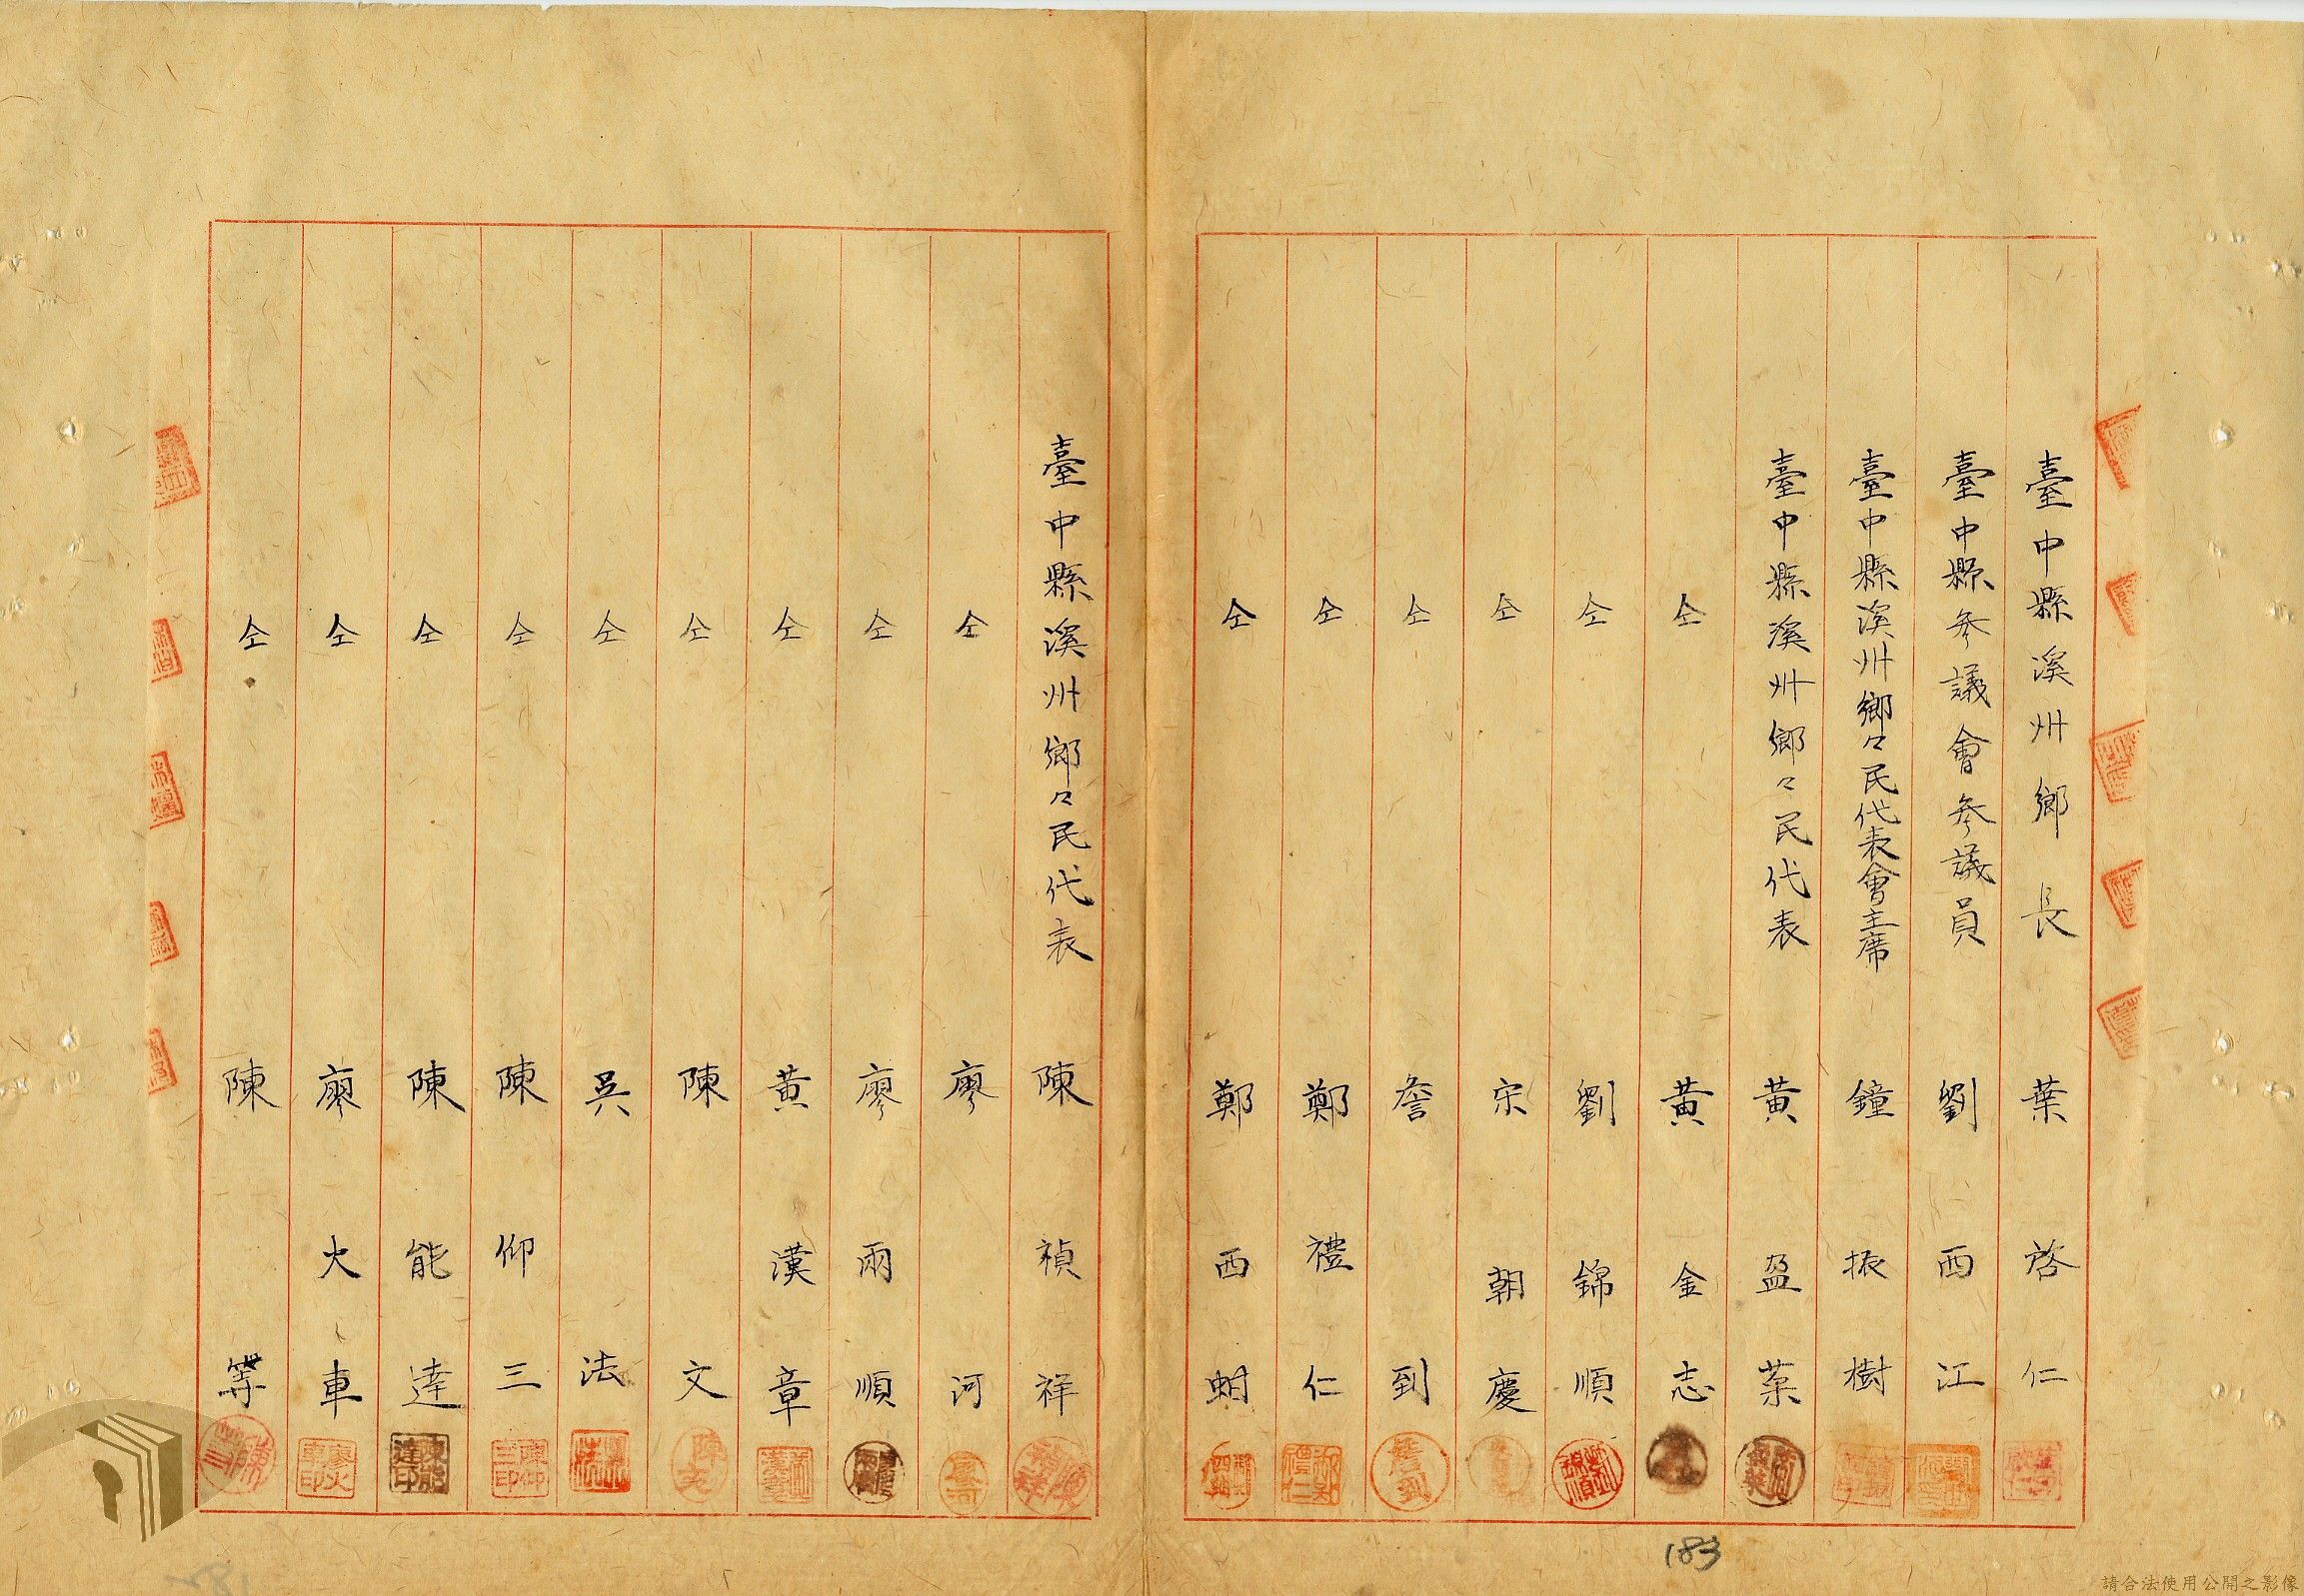 臺中縣溪州鄉長 葉啓仁
臺中縣參議會參議員 劉西江
臺中縣溪州鄉々民代表會主席 鐘振樹
臺中縣溪州鄉々民代表 黃盈菜
仝 黃金志
仝 劉錦順
仝 宋朝慶
仝 詹到
仝 鄭禮仁
仝 鄭西蚶
臺中縣溪州鄉々民代表 陳禎祥
仝 廖河
仝 廖雨順
仝 黃漢章
仝 陳文
仝 吳法
仝 陳仰三
仝 陳能達
仝 廖火車
仝 陳等
183
請合法使用公開之影像